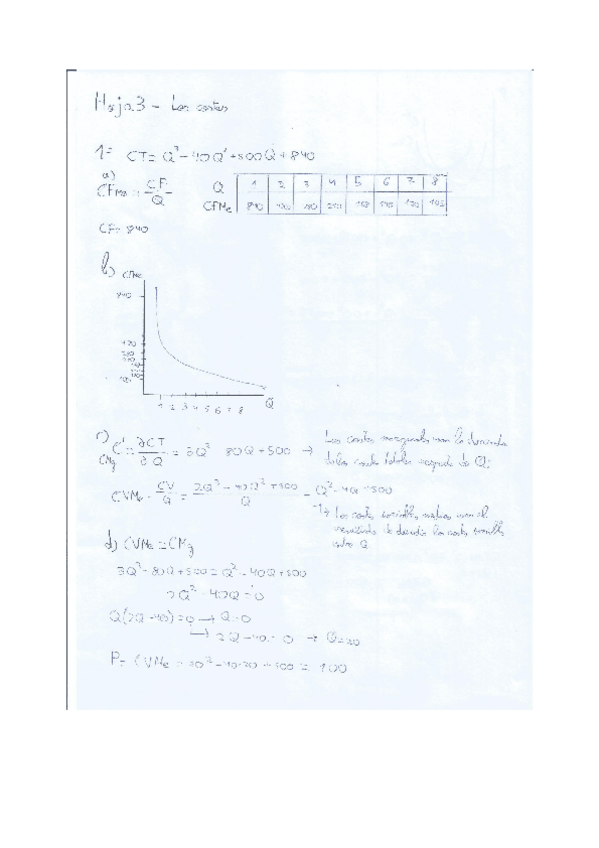 Hoja 3 - Los costes
1= CT = Q³ - 40Q² + 500Q + 840
a)
CFMe = CF / Q
Q 1 2 3 4 5 6 7 8
CFMe 840 420 280 210 168 140 120 105
CF = 840
b) CFMe
840
1 2 3 4 5 6 7 8 Q
c) C' = ∂CT / ∂Q = 3Q² 80Q + 500 → Los costes marginales son la derivada
CMg de los costes totales respecto de Q.
CVMe = CV / Q = Q³ - 40Q² + 500 / Q = Q² - 40Q + 500
↳ Los costes variables medios son el
resultado de dividir los costes variables
entre Q
d) CVMe = CMg
3Q² - 80Q + 500 = Q² - 40Q + 500
2Q² - 40Q = 0
Q(2Q - 40) = 0 → Q = 0
→ 2Q - 40 = 0 → Q = 20
P = CVMe = 20² - 40·20 + 500 = 100